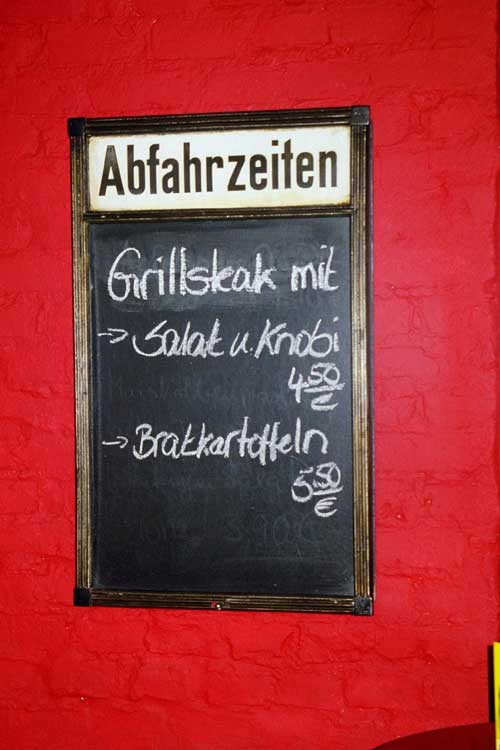 Abfahrzeiten
Grillsteak mit
→ Salat u. Knobi
4 50 €
→ Bratkartoffeln
5 50 €